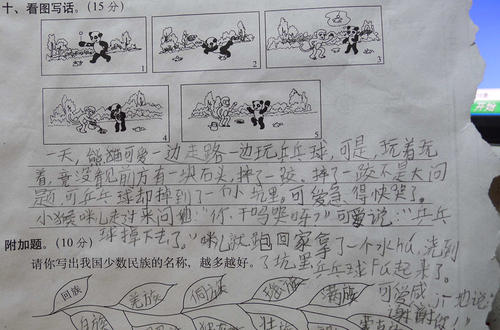 十、看图写话。(15分)
1
2
3
4
5
一天，熊猫可爱一边走路一边玩乒乓球，可是，玩着玩
着，竟没看见前方有一块石头，摔了一跤，摔了一跤不是大问
题，可乒乓球却掉到了一个小坑里。可爱急得快哭了。
小猴咪儿走过来问他："你干吗哭呀？"可爱说："乒乓
球掉下去了。"咪儿就跑回家拿了一个水hú，浇到
了坑里，乒乓球Fú起来了。
可爱感
地说：
谢谢
附加题。(10分)
请你写出我国少数民族的名称，越多越好。
回族
羌族
满族
白族
壮族
开始